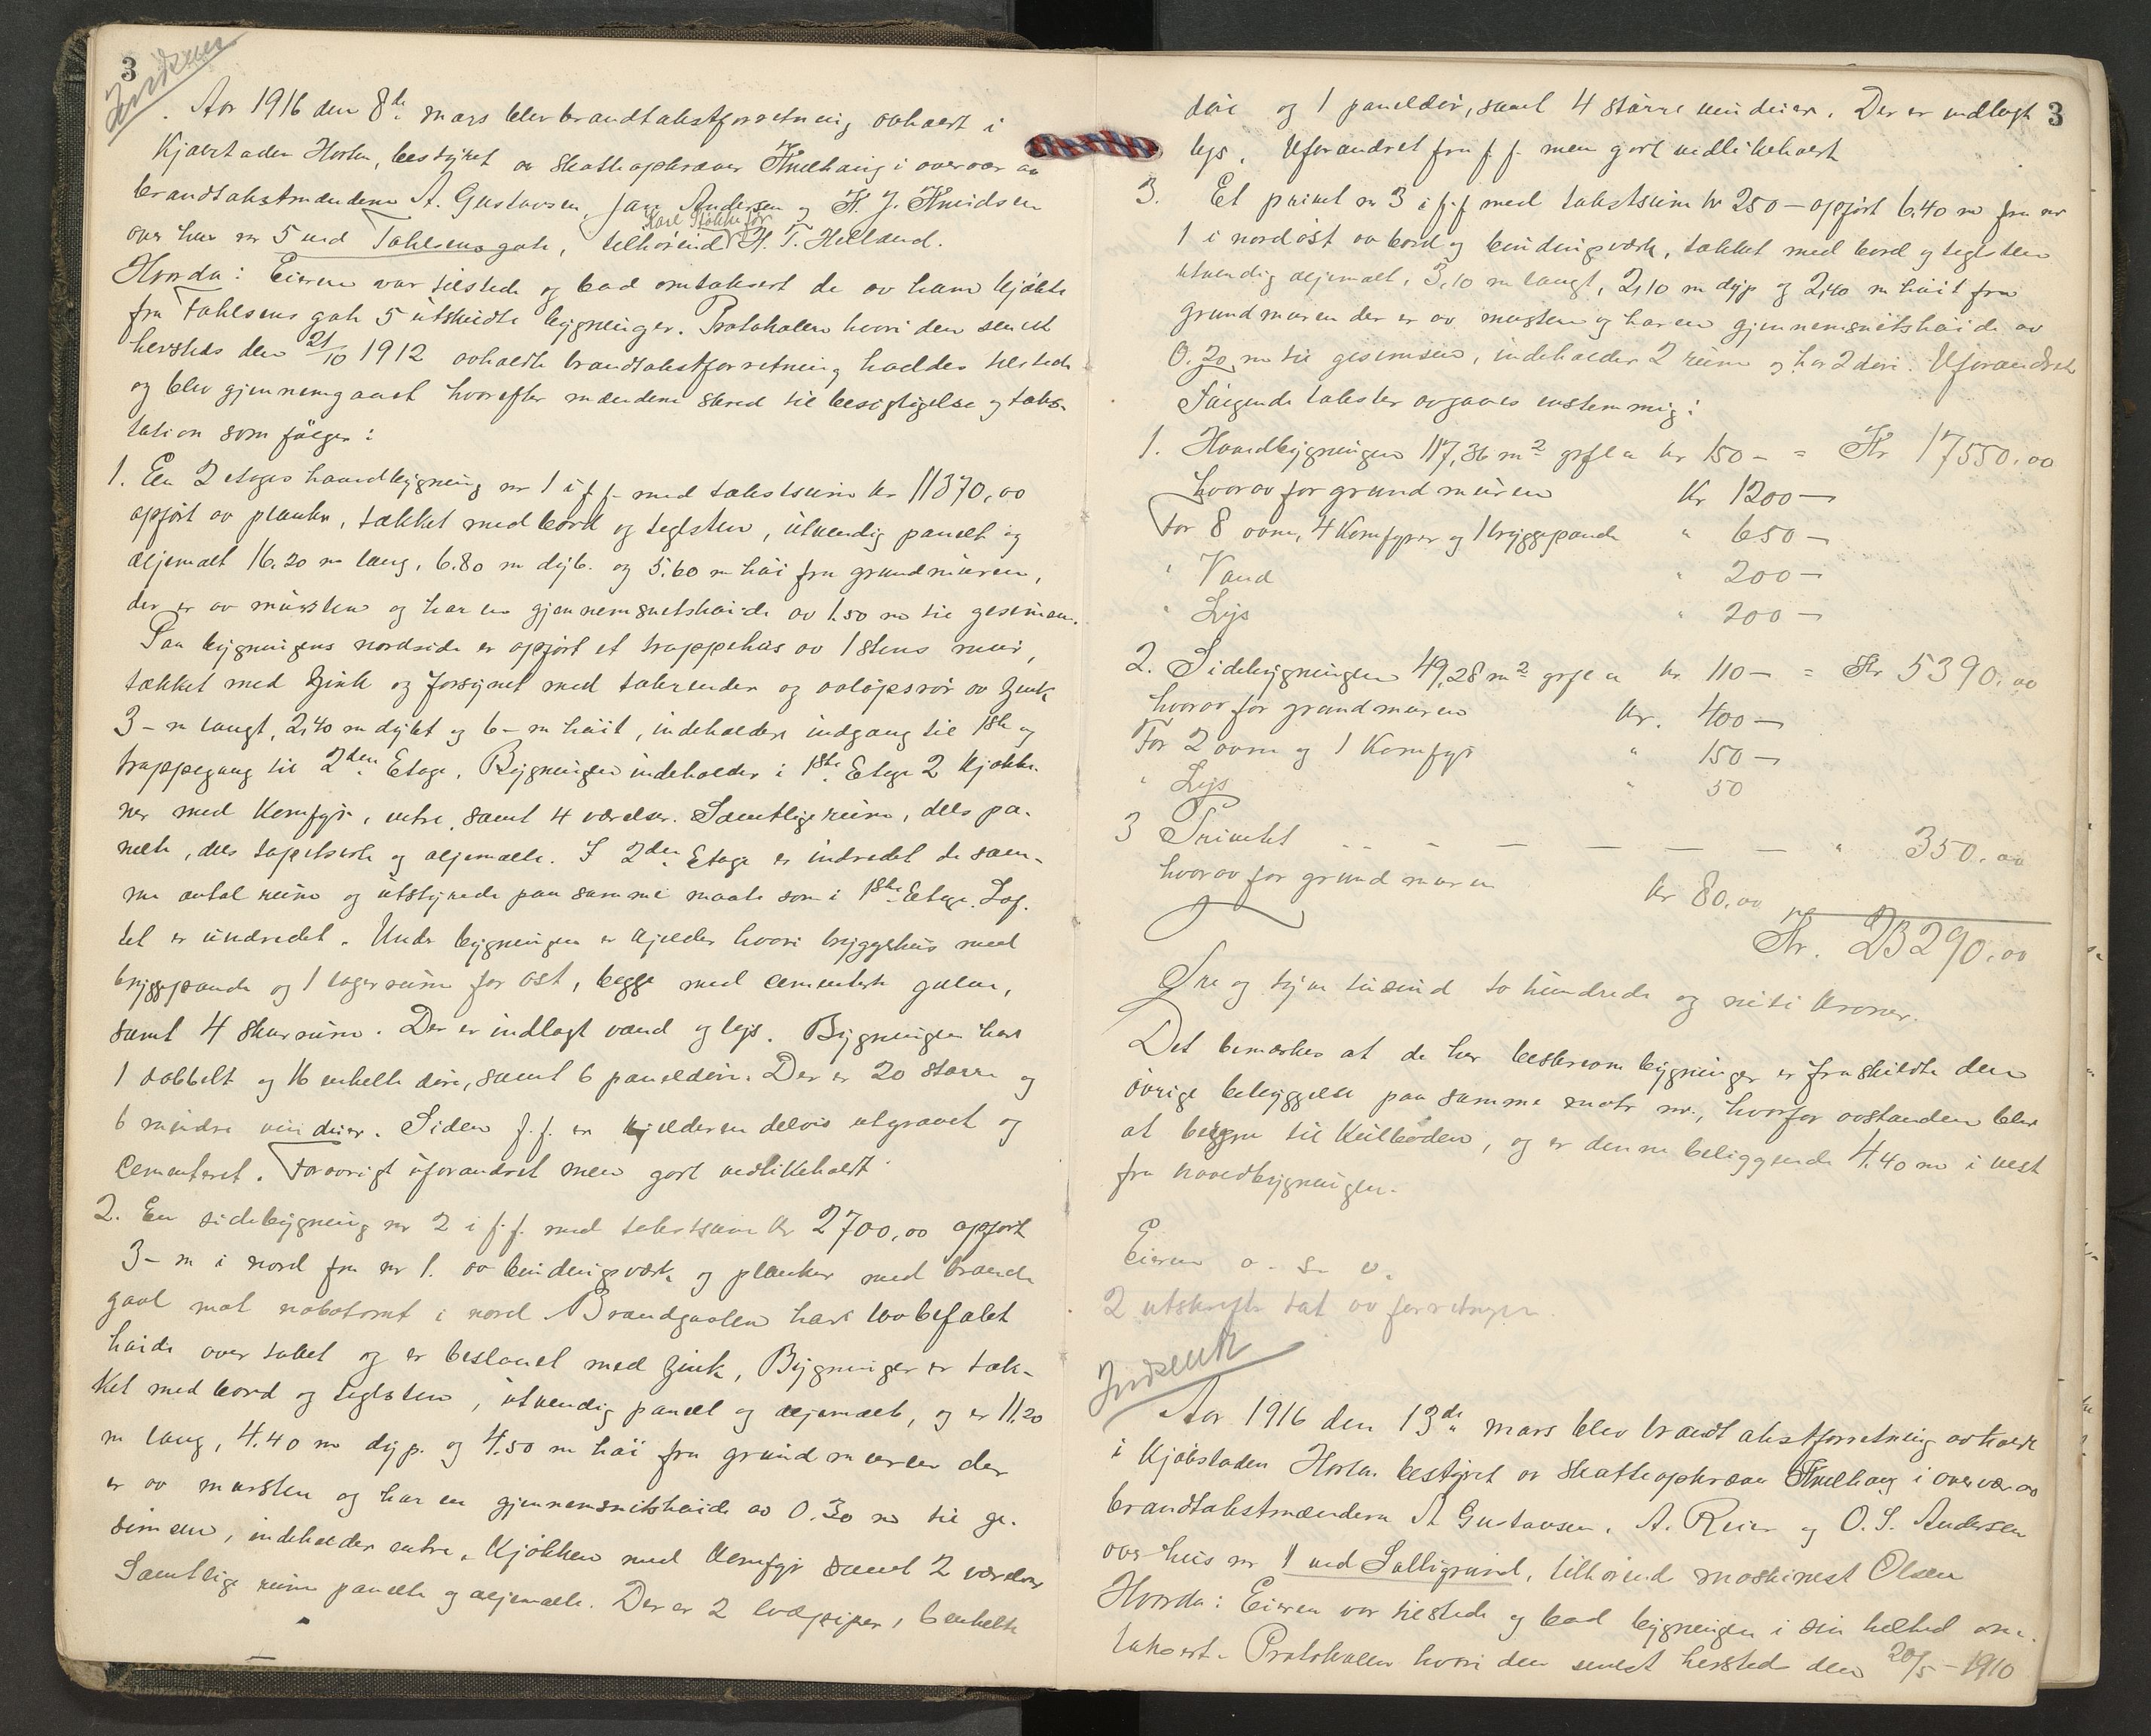 3
Aar 1916 den 8de mars blev brandtakstforretning avholdt i
Kjøbstaden Horten, bestyret av skatteopkræver Thuehaug i overvær av
brandtakstmændene A. Gustavsen, Jan Andersen og K. J. Knudsen
over hus nr 5 ved Tahlsensgate, tilhørende H. T. Helland.
Hvorda: Eieren var tilstede og bad omtaksert de av ham kjøbte
fra Fahlsens gate 5 utskildte bygninger. Protokollen hvori den senest
hersteds den 21/10 1912 avholdte brandtakstforretning haddes tilstede
og blev gjennemgaaet hvorefter mændene skred til besigtigelse og taks-
tation som følger:
1. En 2 etages hovedbygning nr 1 i f.f. med takstsum kr 11370,00
opført av planker, tækket med bord og teglsten, utvendig panelt og
oljemalt 16.20 m lang, 6.80 m dyb. og 5.60 m høi fra grundmuren,
der er av mursten og har en gjennemsnitshøide av 1.50 m til gesimsen.
Paa bygningens nordside er opført et trappehus av 1 stens mur,
tækket med zink og forsynet med takrender og avløpsrør av zink
3- m langt, 2,40 m dybt og 6- m høit, indeholder indgang til 1ste og
trappegang til 2den Etage. Bygningen indeholder i 1ste Etage 2 kjøkke-
ner med Komfyr, entre, samt 4 værelser. Samtlige rum, dels pa-
nelte, dels tapetserte og oljemalte. I 2den Etage er indredet de sam-
me antal rum og utstyrede paa samme maate som i 1ste Etage. Lof-
tet er uindredet. Under bygningen er kjelder hvori bryggehus med
bryggepande og 1 lagerrum for ost, begge med cementerte gulve,
samt 4 skurrum. Der er indlagt vand og lys. Bygningen har
1 dobbelt og 16 enkelte døre, samt 6 paneldøre. Der er 20 større og
6 mindre vinduer. Siden f.f. er kjelderen delvis utgravet og
cementeret. Forøvrigt uforandret men godt vedlikeholdt
2. En sidebygning nr 2 i f.f. med takstsum kr 2700,00 opført
3- m i nord fra nr 1. av bindingsverk og planker med brand-
gavl mot nabotomt i nord. Brandgavlen har lovbefalet
høide over taket og er beslaaet med zink, Bygningen er tæk-
ket med bord og teglsten, utvendig panelt og oljemalt, og er 11.20
m lang, 4.40 m dyp. og 4.50 m høi fra grundmuren der
er av mursten og har en gjennemsnitshøide av 0.30 m til ge-
simsen, indeholder entre, Kjøkken med Komfyr samt 2 værelser
Samtlige rum panelte og oljemalte. Der er 2 luftpiper, 6 enkelte
3
døre og 1 paneldør, samt 4 større vinduer. Der er indlagt
lys. Uforandret fra f.f. men godt vedlikeholdt
3. Et privet nr 3 i f.f. med takstsum kr 250- opført 6.40 m fra nr
1 i nordøst av bord og bindingsværk, tækket med bord og teglsten
utvendig oljemalt, 3,10 m langt, 2,10 m dyp og 2,40 m høit fra
grundmuren der er av mursten og har en gjennemsnitshøide av
0.20 m til gesimsen, indeholder 2 rum og har 2 døre. Uforandret
Følgende takster avgaves enstemmig:
1. Hovedbygningen 117,36 m2 grfl a kr 150- = Kr 17550,00
hvorav for grundmuren Kr 1200-
For 8 ovne, 4 Komfyrer og 1 bryggepande " 650-
" Vand " 200-
" Lys " 200-
2. Sidebygningen 49,28 m2 grfl a kr. 110- = Kr 5390,00
hvorav for grundmuren Kr. 400-
For 2 ovne og 1 Komfyr " 150-
" Lys " 50
3 Privetet - - - - - - - " 350,00
hvorav for grundmuren kr 80,00
Kr. 23290,00
Tre og tyve tusind to hundrede og nitti kroner.
Det bemærkes at de her beskrevne bygninger er fraskildte den
øvrige bebyggelse paa samme matr nr., hvorfor avstanden blev
at beregne til Kulboden, og er denne beliggende 4,40 m i vest
fra hovedbygningen.
Eieren o. s. v.
2 utskrifter tat av forretningen.
Aar 1916 den 13de mars blev brandtakstforretning avholdt
i Kjøbstaden Horten bestyret av skatteopkræver Thuehaug i overvær av
brandtakstmændene A Gustavsen, A. Reier og O. S. Andersen
over hus nr 1 ved Solligrund, tilhørende maskinist Olsen
Hvorda: Eieren var tilstede og bad bygningen i sin helhed om-
taksert. Protokollen hvori den senest hersteds den 20/5 - 1910